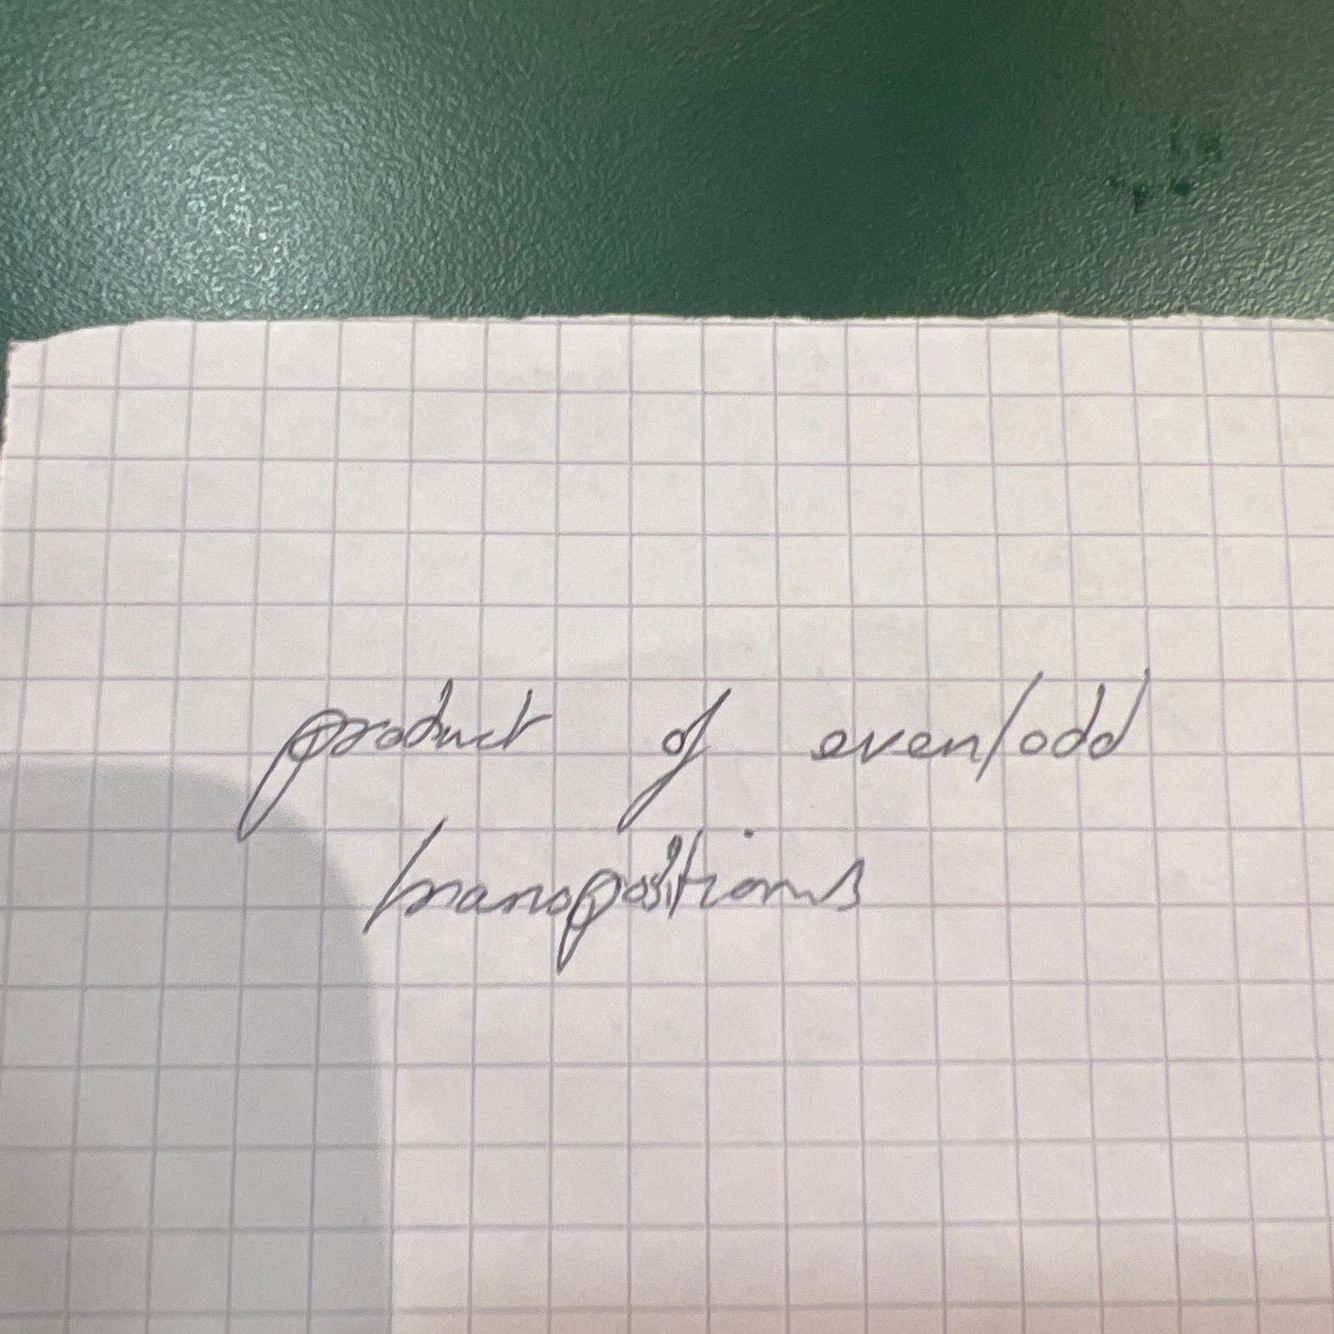 product of even/odd
transpositions